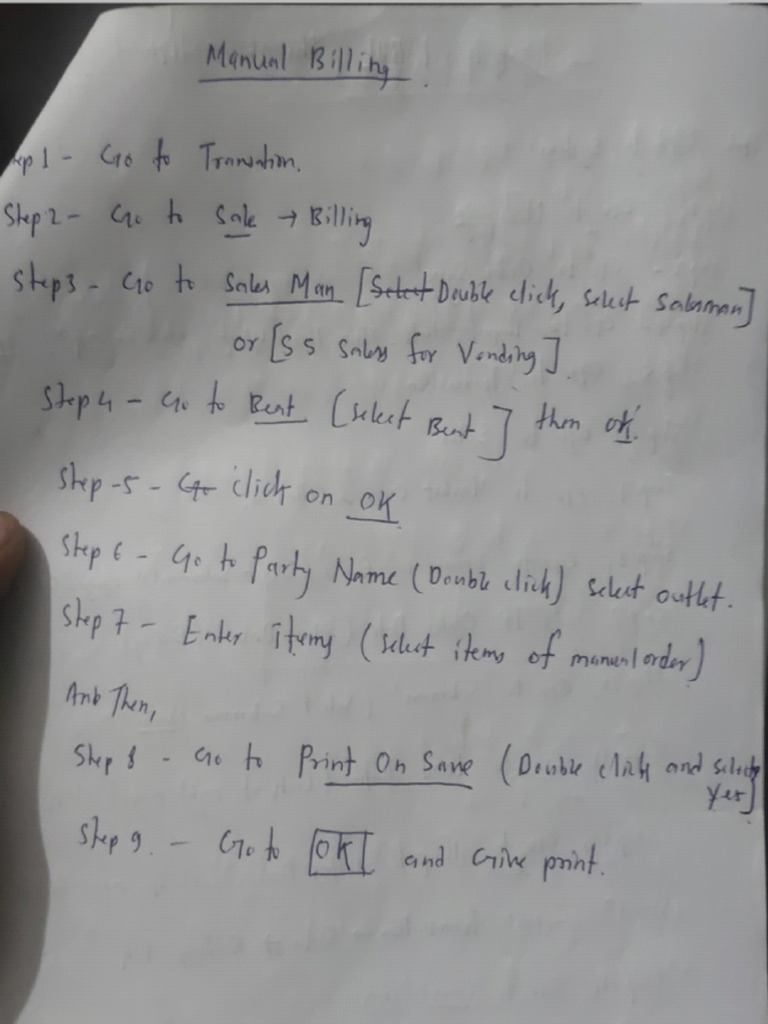 Manual Billing.
Step 1 - Go to Transation.
Step 2 - Go to Sale → Billing
Step 3 - Go to Sales Man [Select Double click, select salesman]
or [S S Sales for Vending].
Step 4 - Go to Beat [select Beat] then ok.
Step - 5 - Go click on OK
Step 6 - Go to Party Name (Double click) select outlet.
Step 7 - Enter items (select items of manual order)
And Then,
Step 8 - Go to Print On Save (Double click and select
Yes)
Step 9. - Go to OK and Give print.